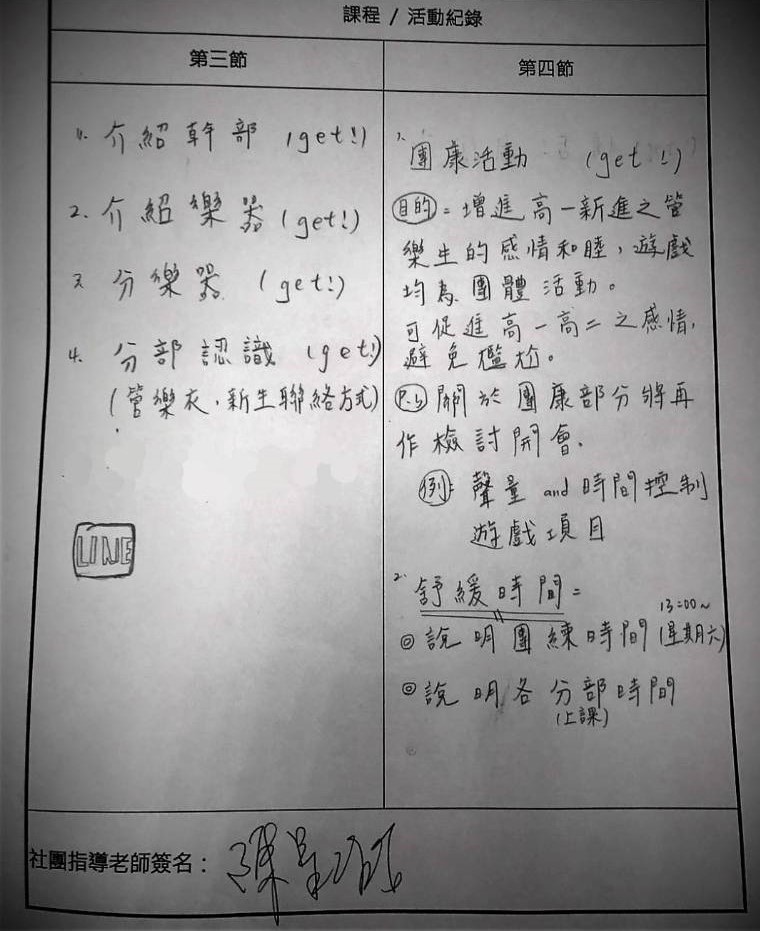 課程 / 活動紀錄
第三節
1. 介紹幹部 (get!)
2. 介紹樂器 (get!)
3. 分樂器 (get!)
4. 分部認識 (get!)
(管樂衣、新生聯絡方式)
LINE
第四節
1. 團康活動 (get!)
目的：增進高一新進之管
樂生的感情和睦，遊戲
均為團體活動。
可促進高一高二之感情，
避免尷尬。
P.S 關於團康部分將再
作檢討開會。
例：聲量 and 時間控制
遊戲項目
2. 舒緩時間：
◎說明團練時間 (星期六)
13:00~
◎說明各分部時間
(上課)
社團指導老師簽名：